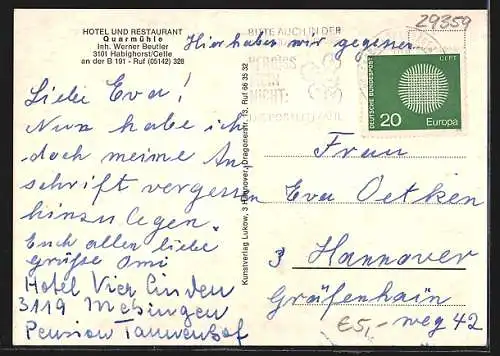 HOTEL UND RESTAURANT
Quarmühle
Inh. Werner Beutler
3101 Habighorst/Celle
an der B 191 - Ruf (05142) 328
Hier haben wir gegessen
29359
BITTE AUCH IN DER
NICHT:
DEUTSCHE BUNDESPOST
CEPT
20 Europa
Liebe Eva!
Nun habe ich
doch meine An
schrift vergessen
hinzulegen.
Euch allen liebe
grüße Omi
Hotel Vier Linden
3119 Mebingen
Pension Tannenhof
Kunstverlag Lukow, 3 Hannover, Dragonerstr. 13, Ruf 66 35 32
Frau
Eva Oetken
3 Hannover
Gräfenhain
weg 42
€5,-